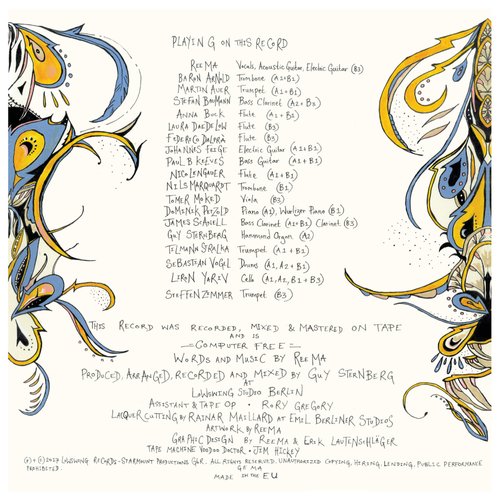 PLAYING ON THIS RECORD
REE MA Vocals, Acoustic Guitar, Electric Guitar (B3)
BARON ARNOLD Trombone (A1+B1)
MARTIN AUER Trumpet (A1+B1)
STEFAN BAUMANN Bass Clarinet (A2+B3)
ANNA BUCK Flute (A1+B1)
LAURA DAEDELOW Flute (B3)
FEDERICO DALPRÀ Flute (B3)
JOHANNES FEIGE Electric Guitar (A1+B1)
PAUL B KEEVES Bass Guitar (A1+B1)
NICO LENGAUER Flute (A1+B1)
NILS MARQUARDT Trombone (B1)
TOMER MAKED Viola (B3)
DOMINIK PETZOLD Piano (A1), Wurlitzer Piano (B1)
JAMES SCANELL Bass Clarinet (A1+B1) Clarinet (B3)
GUY STERNBERG Hammond Organ (A2)
TILMANN STRALKA Trumpet (A1+B1)
SEBASTIAN VOGEL Drums (A1, A2+B1)
LIRON YARIV Cello (A1, A2, B1+B3)
STEFFEN ZIMMER Trumpet (B3)
THIS RECORD WAS RECORDED, MIXED & MASTERED ON TAPE
AND IS
COMPUTER FREE
WORDS AND MUSIC BY REE MA
PRODUCED, ARRANGED, RECORDED AND MIXED BY GUY STERNBERG
AT
LOWSWING STUDIO BERLIN
ASSISTANT & TAPE OP · RORY GREGORY
LACQUER CUTTING BY RAINAR MAILLARD AT EMIL BERLINER STUDIOS
ARTWORK BY REE MA
GRAPHIC DESIGN BY REE MA & ERIK LAUTENSCHLÄGER
TAPE MACHINE VOODOO DOCTOR · JEM HICKEY
(P)+(C) 2017 LOWSWING RECORDS-STARMOUNT PRODUCTIONS GBR. ALL RIGHTS RESERVED. UNAUTHORIZED COPYING, HIRING, LENDING, PUBLIC PERFORMANCE
PROHIBITED. GEMA
MADE IN THE EU